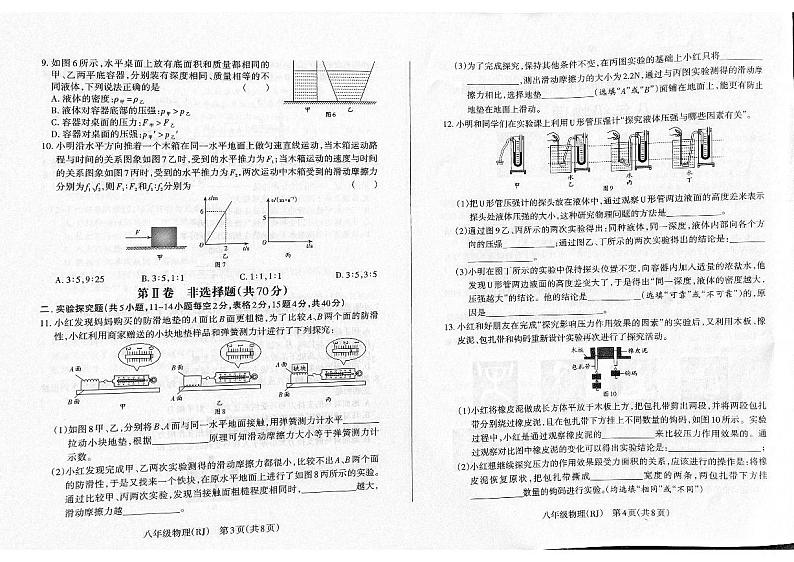 9. 如图6所示,水平桌面上放有底面积和质量都相同的
甲、乙两平底容器,分别装有深度相同、质量相等的不
同液体,下列说法正确的是 ( )
A. 液体的密度:ρ甲=ρ乙
B. 液体对容器底部的压强:p甲>p乙
C. 容器对桌面的压力:F甲>F乙
D. 容器对桌面的压强:p甲′>p乙′
甲 乙
图6
10. 小明沿水平方向推着一个木箱在同一水平地面上做匀速直线运动,当木箱运动路
程与时间的关系图象如图7乙时,受到的水平推力为F₁;当木箱运动的速度与时间
的关系图象如图7丙时,受到的水平推力为F₂,两次运动中木箱受到的滑动摩擦力
分别为f₁、f₂,则F₁:F₂和f₁:f₂分别为 ( )
F
甲
s/m
6
0 2 t/s
乙
v/(m·s⁻¹)
5
0 t/s
丙
图7
A. 3:5,9:25 B. 3:5,1:1 C. 1:1,1:1 D. 3:5,3:5
第Ⅱ卷 非选择题(共70分)
二、实验探究题(共5小题,11~14小题每空2分,表格2分,15题4分,共40分)
11. 小红发现妈妈购买的防滑地垫的A面比B面更粗糙,为了比较A、B两个面的防滑
性,小红利用商家赠送的小块地垫样品和弹簧测力计进行了下列探究:
A面
B面
甲
B面
A面
乙
A面
铁块
B面
丙
图8
(1)如图8甲、乙,分别将B、A面与同一水平地面接触,用弹簧测力计水平________
拉动小块地垫,根据________原理可知滑动摩擦力大小等于弹簧测力计
示数。
(2)小红发现完成甲、乙两次实验测得的滑动摩擦力都很小,比较不出A、B两个面
的防滑性,于是又找来一个铁块,在原水平地面上进行了如图8丙所示的实验。
通过比较甲、丙两次实验,发现当接触面粗糙程度相同时,________越大,
滑动摩擦力越________。
八年级物理(RJ) 第3页(共8页)
(3)为了完成探究,保持其他条件不变,在丙图实验的基础上小红只将________
________,测出滑动摩擦力的大小为2.2N,通过与丙图实验测得的滑动摩
擦力相比,选择地垫________(选填“A”或“B”)面铺在地面上,能更有防止
地垫在地面上滑动。
12. 小明和同学们在实验课上利用U形管压强计“探究液体压强与哪些因素有关”。
甲
水
乙
水
丙
水
丁
图9
(1)把U形管压强计的探头放在液体中,通过观察U形管两边液面的高度差来表示
探头处液体压强的大小,这种研究物理问题的方法是________。
(2)通过图9乙、丙所示的两次实验得出:同种液体,同一深度,液体内部向各个方
向的压强________;通过图乙、丁所示的两次实验得出的结论是:________
________。
(3)小明在图丁所示的实验中保持探头位置不变,向容器内加入适量的浓盐水,他
发现U形管两边液面的高度差变大了,于是得出“同一深度,液体的密度越大,
压强越大”的结论。他的结论是________(选填“可靠”或“不可靠”)的,原
因是________。
13. 小红和好朋友在完成“探究影响压力作用效果的因素”的实验后,又利用木板、橡
皮泥、包扎带和钩码重新设计实验再次进行了探究活动。
木板
橡皮泥
包扎带
钩码
图10
(1)小红将橡皮泥做成长方体平放于木板上方,把包扎带剪出两段,并将两段包扎
带分别绕过橡皮泥,且在包扎带下方挂上不同数量的钩码,如图10所示。实验
过程中,小红是通过观察橡皮泥的________来比较压力作用效果的。通
过观察对比图中橡皮泥的变化可以得出实验结论是:________;
(2)小红想继续探究压力的作用效果跟受力面积的关系,应该进行的操作是:将橡
皮泥恢复原状,把包扎带撕成________宽度的两条,包扎带下方挂
________数量的钩码进行实验。(均选填“相同”或“不同”)
八年级物理(RJ) 第4页(共8页)